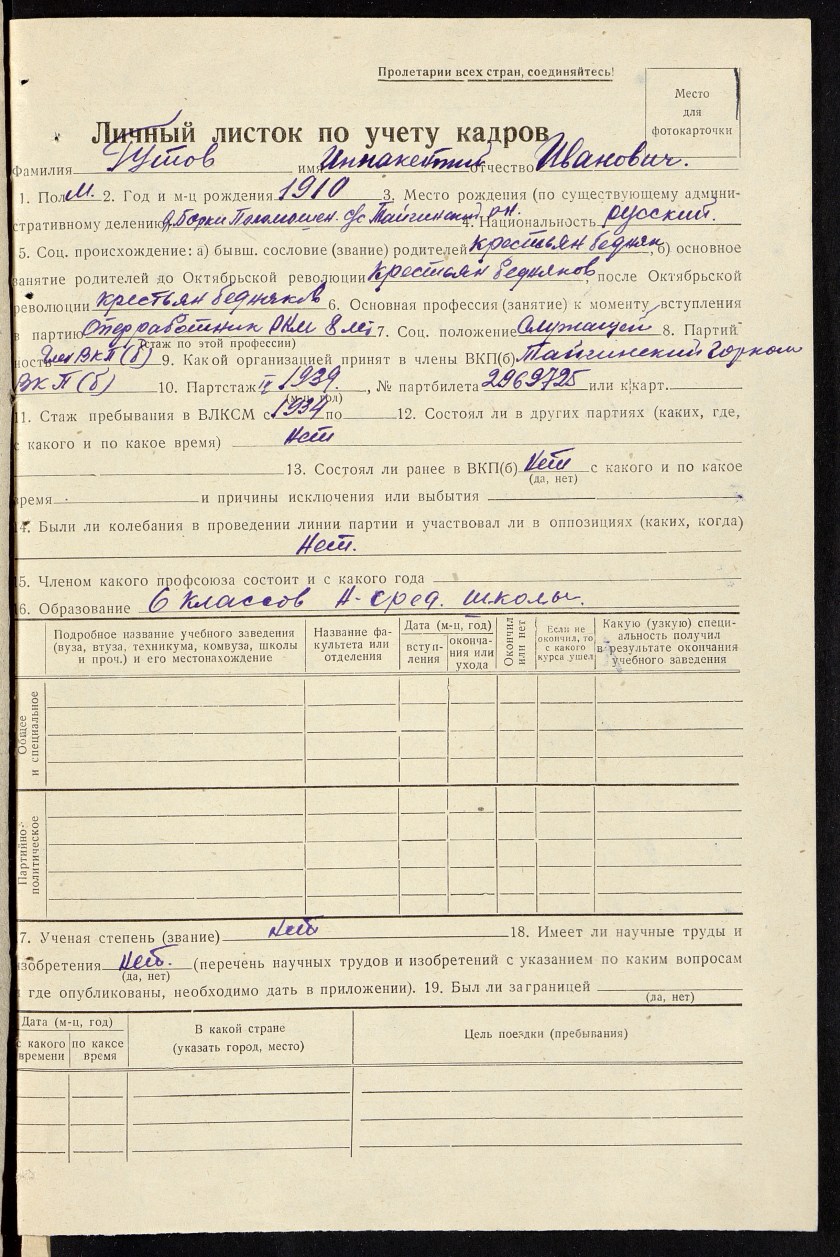 Пролетарии всех стран, соединяйтесь!
Место
для
фотокарточки
Личный листок по учету кадров
Фамилия имя Иннакентий отчество Иванович.
1. Пол М. 2. Год и м-ц рождения 1910 3. Место рождения (по существующему админи-
стративному делению) д. Борки Поломошен. с/с Тайгинский рн. 4. Национальность русский.
5. Соц. происхождение: а) бывш. сословие (звание) родителей крестьян бедняк б) основное
занятие родителей до Октябрьской революции крестьян бедняков, после Октябрьской
революции крестьян бедняков 6. Основная профессия (занятие) к моменту вступления
в партию Оперработник РКМ 8 лет 7. Соц. положение Служащей 8. Партий-
(стаж по этой профессии)
ность Член ВКП(б) 9. Какой организацией принят в члены ВКП(б) Тайгинский Горком
ВКП(б) 10. Партстаж IV 1939. , № партбилета 2969725 или к/карт.
(м-ц, год)
11. Стаж пребывания в ВЛКСМ с 1934 по 12. Состоял ли в других партиях (каких, где,
с какого и по какое время) Нет
13. Состоял ли ранее в ВКП(б) Нет с какого и по какое
(да, нет)
время и причины исключения или выбытия
14. Были ли колебания в проведении линии партии и участвовал ли в оппозициях (каких, когда)
Нет.
15. Членом какого профсоюза состоит и с какого года
16. Образование 6 классов Н-сред. школы.
Подробное название учебного заведения
(вуза, втуза, техникума, комвуза, школы
и проч.) и его местонахождение
Название фа-
культета или
отделения
Дата (м-ц, год)
вступ-
ления
оконча-
ния или
ухода
Окончил
или нет
Если не
окончил, то
с какого
курса ушел
Какую (узкую) специ-
альность получил
в результате окончания
учебного заведения
Общее
и специальное
Партийно-
политическое
17. Ученая степень (звание) Нет 18. Имеет ли научные труды и
изобретения Нет. (перечень научных трудов и изобретений с указанием по каким вопросам
(да, нет)
и где опубликованы, необходимо дать в приложении). 19. Был ли за границей
(да, нет)
Дата (м-ц, год)
с какого
времени
по какое
время
В какой стране
(указать город, место)
Цель поездки (пребывания)